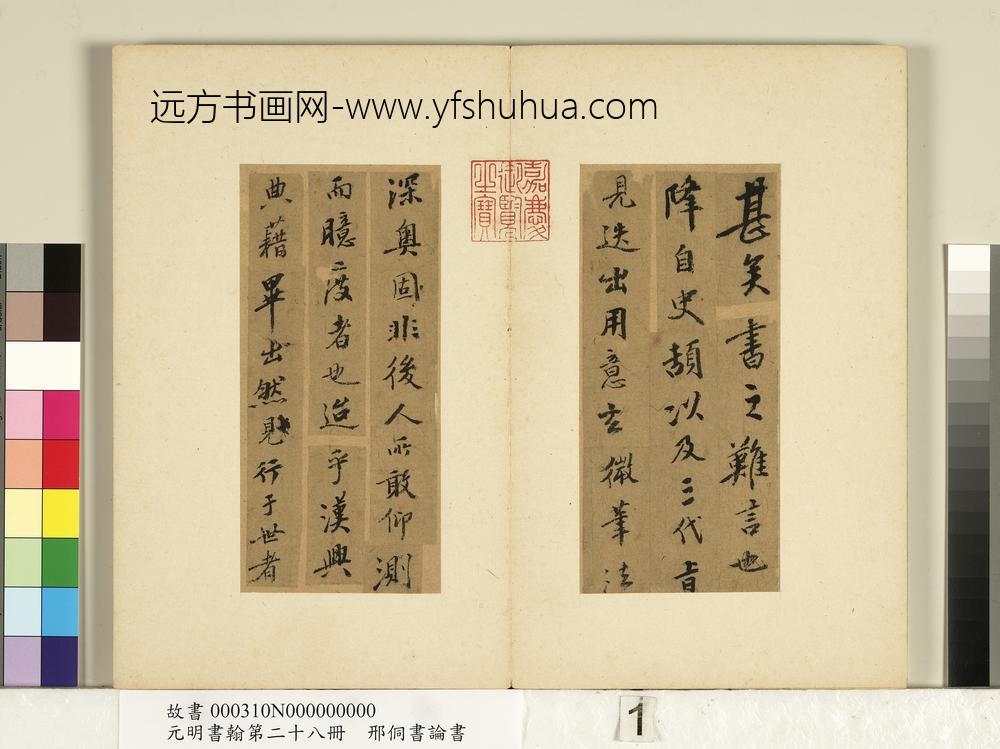 远方书画网-www.yfshuhua.com
甚矣書之難言也
降自史頡以及三代皆
見迭出用意玄微筆法
嘉慶御覽之寶
深奥固非後人所敢仰測
而臆度者也迨乎漢興
典藉畢出然見行于世者
故書 000310N000000000
元明書翰第二十八冊 邢侗書論書
1